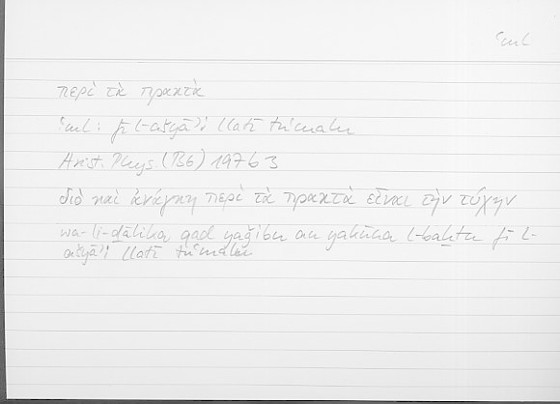 ʿml
περὶ τὰ πρακτά
ʿml: fī l-ašyāʾi llatī tuʿmalu
Arist. Phys. (B6) 197b3
διὸ καὶ ἀνάγκη περὶ τὰ πρακτὰ εἶναι τὴν τύχην
wa-li-ḏālika, qad yaǧibu an yakūna l-baḫtu fī l-
ašyāʾi llatī tuʿmalu